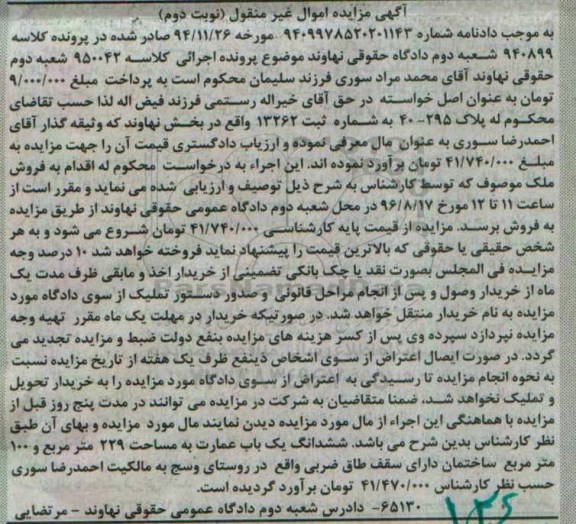 آگهی مزایده اموال غیر منقول (نوبت دوم)
به موجب دادنامه شماره ۹۴۰۹۹۷۸۵۲۰۲۰۱۱۴۳ مورخه ۹۴/۱۱/۲۶ صادر شده در پرونده کلاسه
۹۴۰۸۹۹ شعبه دوم دادگاه حقوقی نهاوند موضوع پرونده اجرائی کلاسه ۹۵۰۰۴۲ شعبه دوم
حقوقی نهاوند آقای محمد مراد سوری فرزند سلیمان محکوم است به پرداخت مبلغ ۹/۰۰۰/۰۰۰
تومان به عنوان اصل خواسته در حق آقای خیراله رستمی فرزند فیض اله لذا حسب تقاضای
محکوم له پلاک ۲۹۵-۴۰ به شماره ثبت ۱۳۲۶۲ واقع در بخش نهاوند که وثیقه گذار آقای
احمدرضا سوری به عنوان مال معرفی نموده و ارزیاب دادگستری قیمت آن را جهت مزایده به
مبلغ ۴۱/۷۴۰/۰۰۰ تومان برآورد نموده اند. این اجراء به درخواست محکوم له اقدام به فروش
ملک موصوف که توسط کارشناس به شرح ذیل توصیف و ارزیابی شده می نماید و مقرر است از
ساعت ۱۱ تا ۱۲ مورخ ۹۶/۸/۱۷ در محل شعبه دوم دادگاه عمومی حقوقی نهاوند از طریق مزایده
به فروش برسد. مزایده از قیمت پایه کارشناسی ۴۱/۷۴۰/۰۰۰ تومان شروع می شود و به هر
شخص حقیقی یا حقوقی که بالاترین قیمت را پیشنهاد نماید فروخته خواهد شد ۱۰ درصد وجه
مزایده فی المجلس بصورت نقد یا چک بانکی تضمینی از خریدار اخذ و مابقی ظرف مدت یک
ماه از خریدار وصول و پس از انجام مراحل قانونی و صدور دستور تملیک از سوی دادگاه مورد
مزایده به نام خریدار منتقل خواهد شد. در صورتیکه خریدار در مهلت یک ماه مقرر تهیه وجه
مزایده نپردازد سپرده وی پس از کسر هزینه های مزایده بنفع دولت ضبط و مزایده تجدید می
گردد. در صورت ایصال اعتراض از سوی اشخاص ذینفع ظرف یک هفته از تاریخ مزایده نسبت
به نحوه انجام مزایده تا رسیدگی به اعتراض از سوی دادگاه مورد مزایده را به خریدار تحویل
و تملیک نخواهد شد، ضمنا متقاضیان به شرکت در مزایده می توانند در مدت پنج روز قبل از
مزایده با هماهنگی این اجراء از مال مورد مزایده دیدن نمایند مال مورد مزایده و بهای آن طبق
نظر کارشناس بدین شرح می باشد. ششدانگ یک باب عمارت به مساحت ۲۲۹ متر مربع و ۱۰۰
متر مربع ساختمان دارای سقف طاق ضربی واقع در روستای وسج به مالکیت احمدرضا سوری
حسب نظر کارشناس ۴۱/۴۷۰/۰۰۰ تومان برآورد گردیده است.
۶۵۱۳۰- دادرس شعبه دوم دادگاه عمومی حقوقی نهاوند - مرتضایی